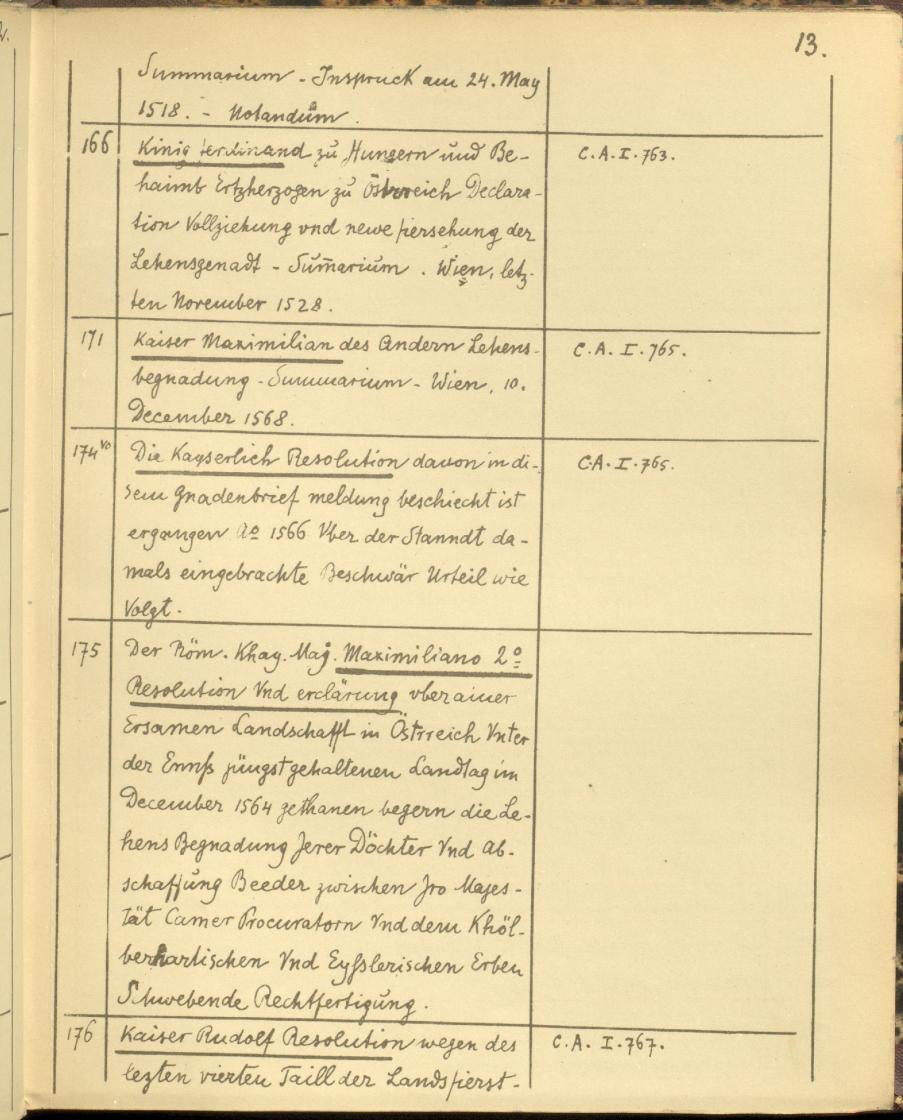 13.
Summarium - Inspruck am 24. May
1518. - Notandum.
166 Kinig Ferdinand zu Hungern und Be- C.A.I.763.
haimb Ertzherzogen zu Östrreich Declara-
tion Vollziehung vnd newe fiersehung der
Lehensgenadt - Sum̄arium. Wien, letz-
ten November 1528.
171 Kaiser Maximilian des Andern Lehens- C.A.I.765.
begnadung - Summarium - Wien, 10.
December 1568.
174vo Die Kayserlich Resolution dauon in di- C.A.I.765.
sem Gnadenbrief meldung beschiecht ist
ergangen Ao 1566 Vber der Stanndt da-
mals eingebrachte Beschwär Urteil wie
Volgt.
175 Der Röm. Khay. Maj. Maximiliano 2o
Resolution Vnd erclärung vber ainer
Ersamen Landschafft in Östrreich Vnter
der Ennß jüngst gehaltenen Landtag im
December 1564 gethanen begern die Le-
hens Begnadung Jerer Döchter Vnd Ab-
schaffung Beeder zwischen Jro Majes-
tät Camer Procuratorn Vnd dem Khöl-
berhartischen Vnd Eyßlerischen Erben
Schwebende Rechtfertigung.
176 Kaiser Rudolf Resolution wegen des C.A.I.767.
lezten vierten Taill der Landsfierst-